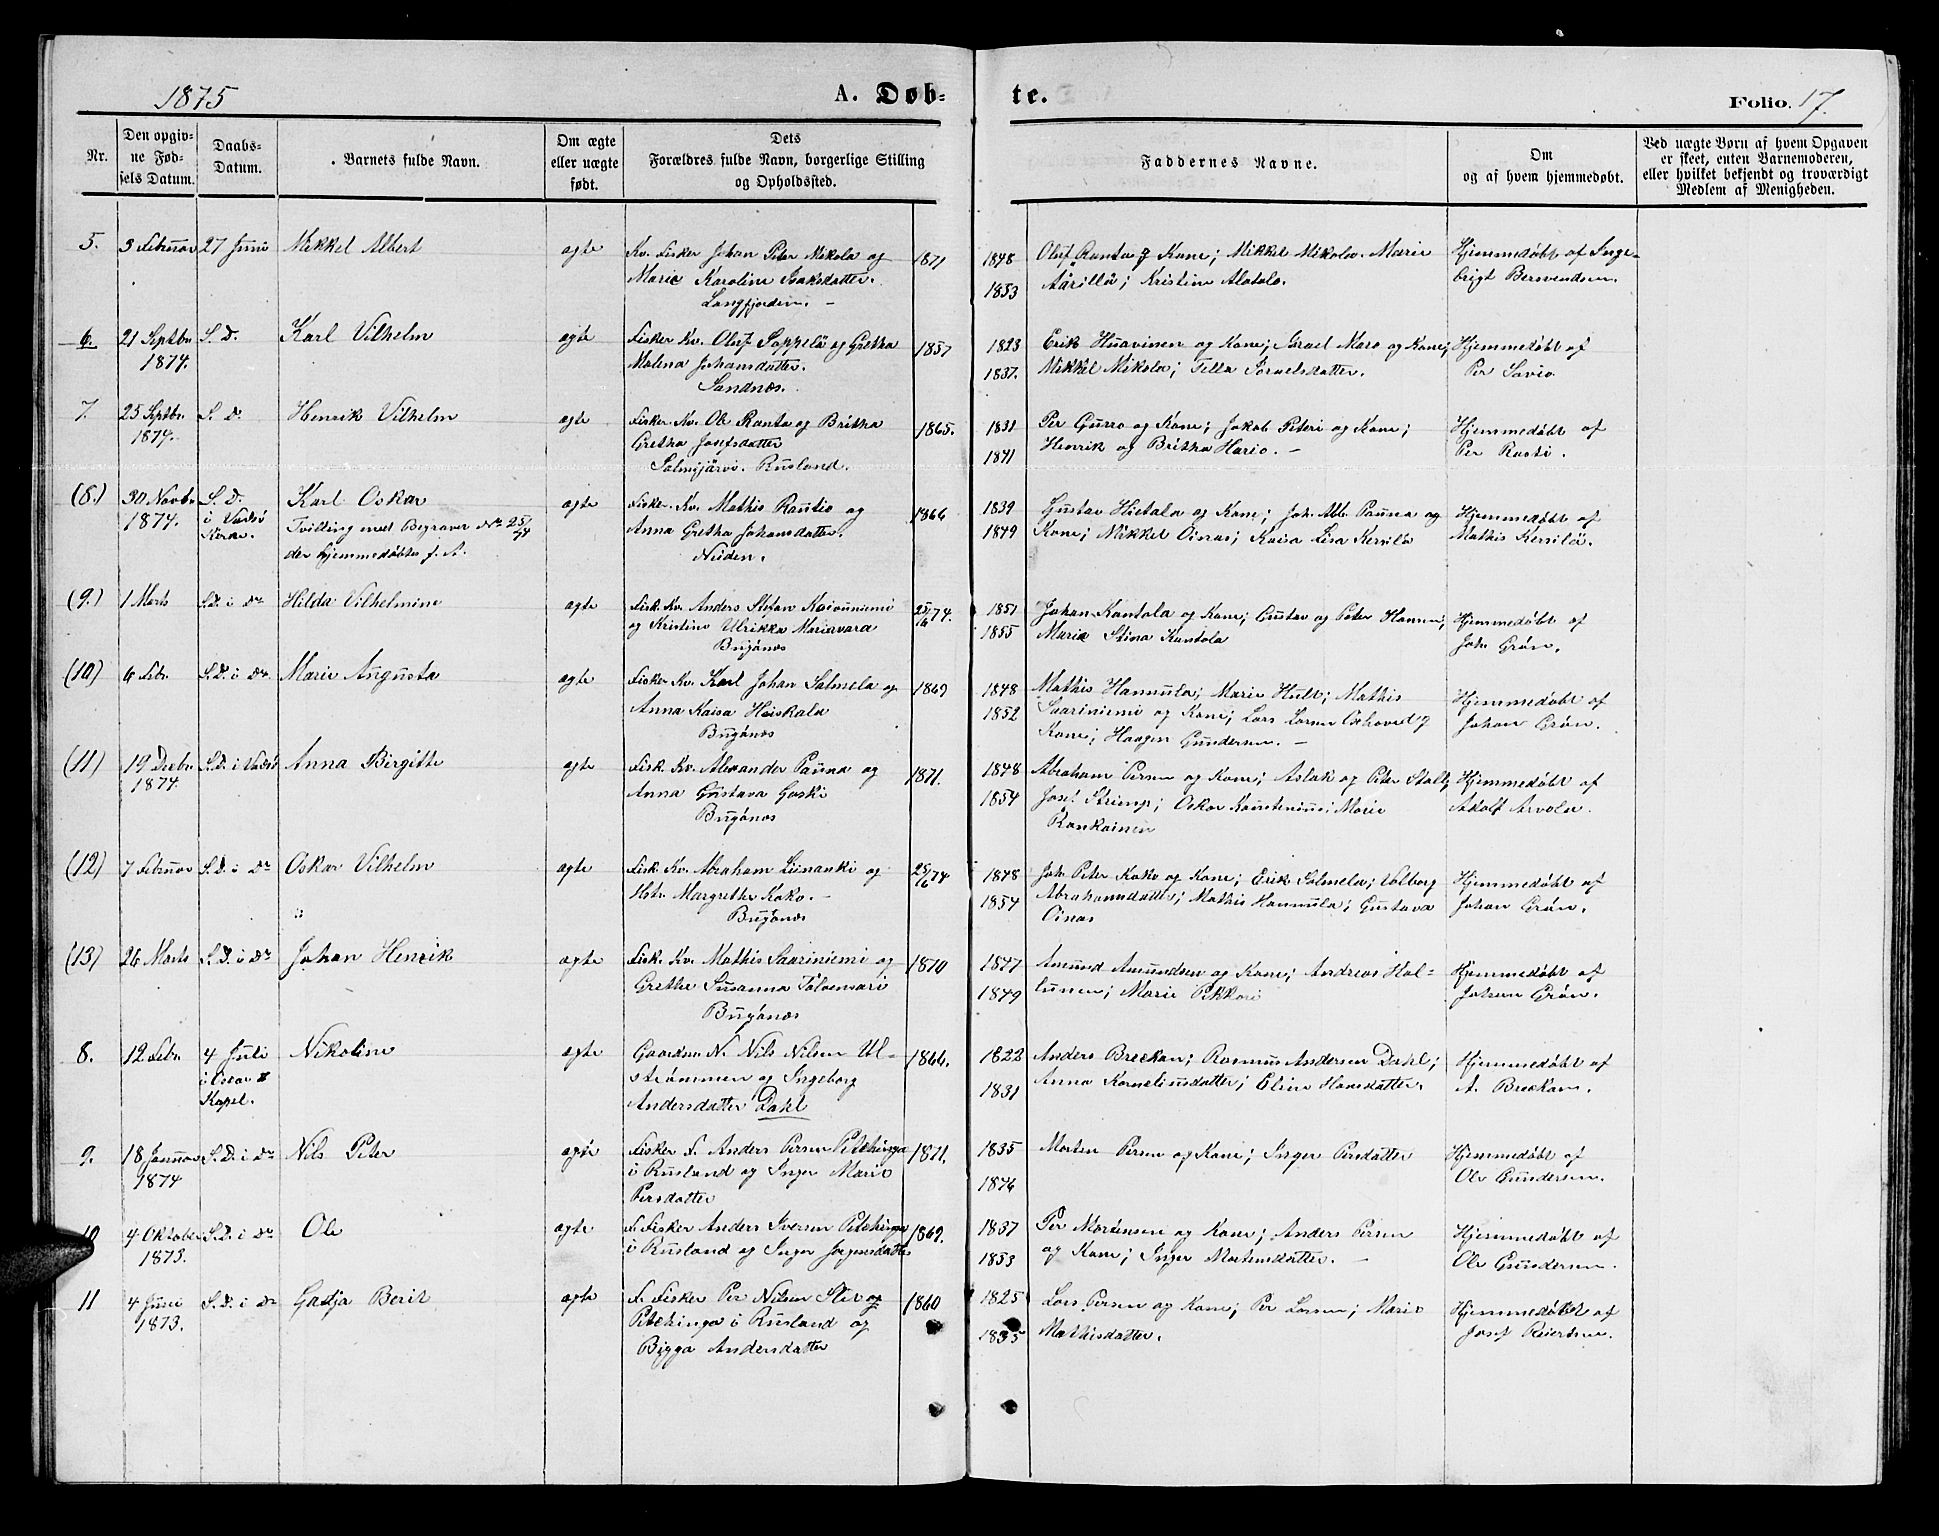 1875
A. Døb-
te.
Folio. 17.
Nr.
Den opgiv-
ne Fød-
sels Datum.
Daabs-
Datum.
Barnets fulde Navn.
Om ægte
eller uægte
født.
Dets
Forældres fulde Navn, borgerlige Stilling
og Opholdssted.
Faddernes Navne.
Om
og af hvem hjemmedøbt.
Ved uægte Børn af hvem Opgaven
er skeet, enten Barnemoderen,
eller hvilket bekjendt og troværdigt
Medlem af Menigheden.
5. 3 Februar 27 Juni Mikkel Albert ægte Kv. Fisker Johan Peter Mikola og 1871 1848 Oluf Ranta og Kone; Mikkel Mikola. Marie Hjemmedøbt af Inge-
Marie Karoline Isaksdatter. 1853 Kristine Alatalo. brigt Bersvendsen.
Langfjorden. -
6. 21 Septbr S. D. Karl Vilhelm ægte Fisker Kv. Oluf Soppela og Gretha 1857 1823 Erik Huavinen og Kone; Israel Maro og Kone; Hjemmedøbt af
1874. Malena Johansdatter. 1837. Mikkel Mikola; Tella Israelsdatter. Per Savio.
Sandnæs.
7. 25 Septbr. S. D. Henrik Vilhelm ægte Fisker Kv. Ole Ranta og Britha 1865. 1831 Per Gurro og Kone; Jakob Peteri og Kone; Hjemmedøbt af
1874. Gretha Josefsdatter 1841 Henrik og Britha Hario. - Per Rasti.
Salmijärvi. Rusland.
(8.) 30 Novbr. S. D. Karl Oskar ægte Fisker. Kv. Mathis Rautio og 1866 1839 Gustav Hietala og Kone; Joh. Abr. Pauna og Hjemmedøbt af
1874. i Vadsø Tvilling med Begravet No 25/74 Anna Gretha Johansdatter. 1849 Kone; Mikkel Oinas; Kaisa Lisa Kersilä Mathis Kersilä.
Kirke. der hjemmedøbtes f. A. Neiden.
(9.) 1 Marts S.D. i do Hilda Vilhelmine ægte Fisk. Kv. Anders Stefan Koivuniemi 25/6 74. 1851 Johan Kantola og Kone; Gustav og Peter Hannu; Hjemmedøbt af
og Kristine Ulrikka Mariavara 1855 Maria Stina Kantola Joh. Grön.
Bugönæs
(10) 6 Febr. S.D. i do. Marie Augusta ægte Fisker Kv. Karl Johan Salmela og 1869 1848 Mathis Hannula; Marie Hult; Mathis Hjemmedøbt af
Anna Kaisa Heiskala 1852 Saariniemi og Kone; Lars Larsen og Johan Grön.
Bugönæs Kone; Haagen Gundersen. -
(11) 19 Decbr. S.D. i Vadsø Anna Birgitte ægte Fisk. Kv. Alexander Pauna og 1871. 1848 Abraham Persen og Kone; Aslak og Peter Hjemmedøbt af
1874. Anna Gustava Gaski 1854 Josef Oskar Marie Adolf Arvola.
Bugönæs Kankainen
(12) 7 Februar S.D. i do Oskar Vilhelm ægte Fisk. Kv. Abraham Liinanki og 25/6 74 1848 Joh. Peter Koko og Kone; Erik Salmela; Valborg Hjemmedøbt af
Hstr. Margrethe Koko. - 1854 Abrahamsdatter; Mathis Hannula; Gustava Johan Grön.
Bugönæs Oinas
(13) 26 Marts S.D. i do Johan Henrik ægte Fisk. Kv. Mathis Saariniemi og 1870 1847 Amund Amundsen og Kone; Andreas Hal- Hjemmedøbt af
Grethe Susanna Talvensari 1849 lunen; Marie Pikkari Johan Grön.
Bugönæs
8. 12 Febr. 4 Juli Nikoline ægte Gaardm. N. Nils Nilsen Ul- 1866. 1822 Anders Breckan; Rasmus Andersen Dahl; Hjemmedøbt af
i Oscar II strømmen og Ingeborg 1831 Anna Korneliusdatter; Eline Hansdatter. A. Breckan.
Kapel. Andersdatter Dahl
9. 18 Januar S.D. i do Nils Peter ægte Fisker F. Anders Persen Petchinga 1871. 1835 Morten Persen og Kone; Inger Persdatter Hjemmedøbt af
1874 i Rusland og Inger Marie 1846 Ole Gundersen.
Persdatter
10 4 Oktober S.D. i do Ole ægte F. Fisker Anders Iversen Petchinga 1869. 1837 Per Mortensen og Kone; Anders Persen Hjemmedøbt af
1873. i Rusland og Inger Jørgensdatter 1853 og Kone; Inger Mortensdatter. - Ole Gundersen.
11 4 Juni S.D. i do Gadja Berit ægte F. Fisker Per Nilsen 1860 1825 Lars Persen og Kone; Per Larsen; Marie Hjemmedøbt af
1873. Petchinga i Rusland og 1835 Mathisdatter. Josef Reiertsen.
Bigga Andersdatter